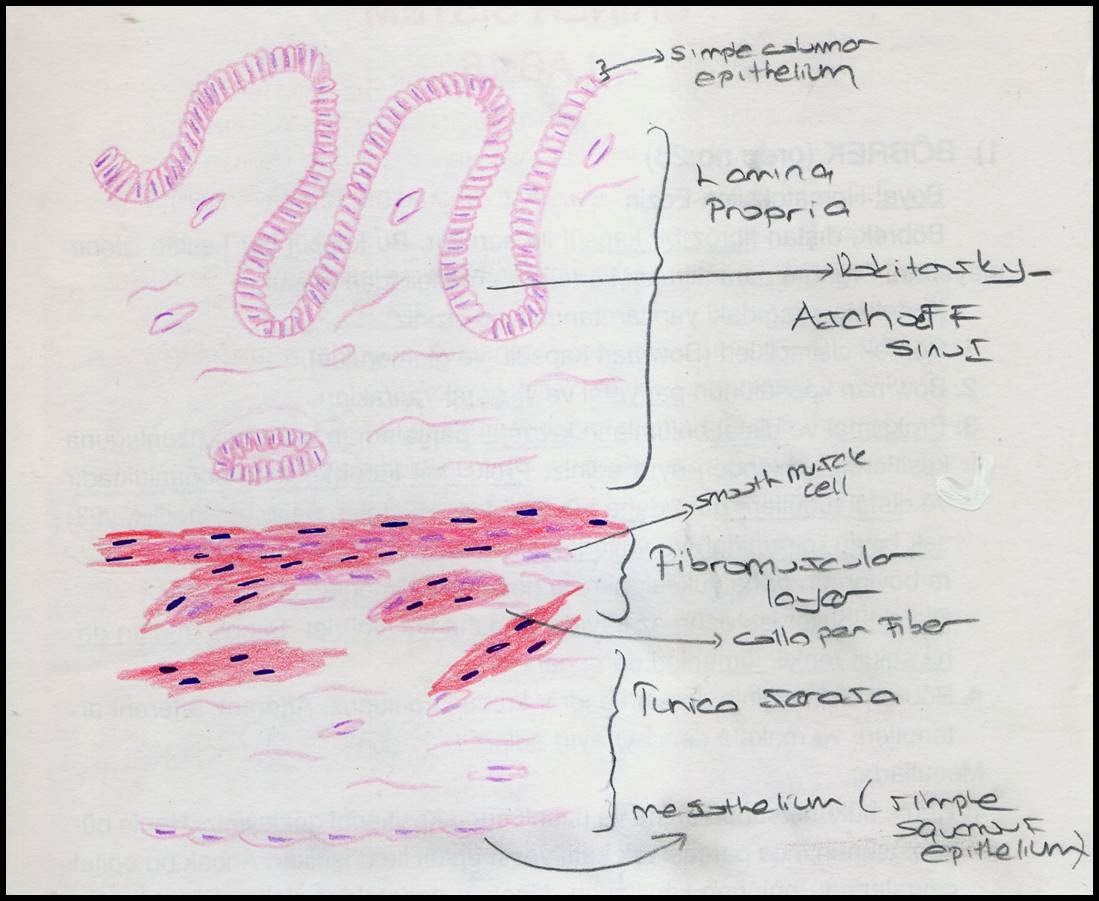 simple columnar
epithelium
Lamina
Propria
Rokitansky-
Aschoff
sinus
smooth muscle
cell
Fibromuscular
layer
collagen Fiber
Tunica serosa
mesothelium (simple
squamous
epithelium)